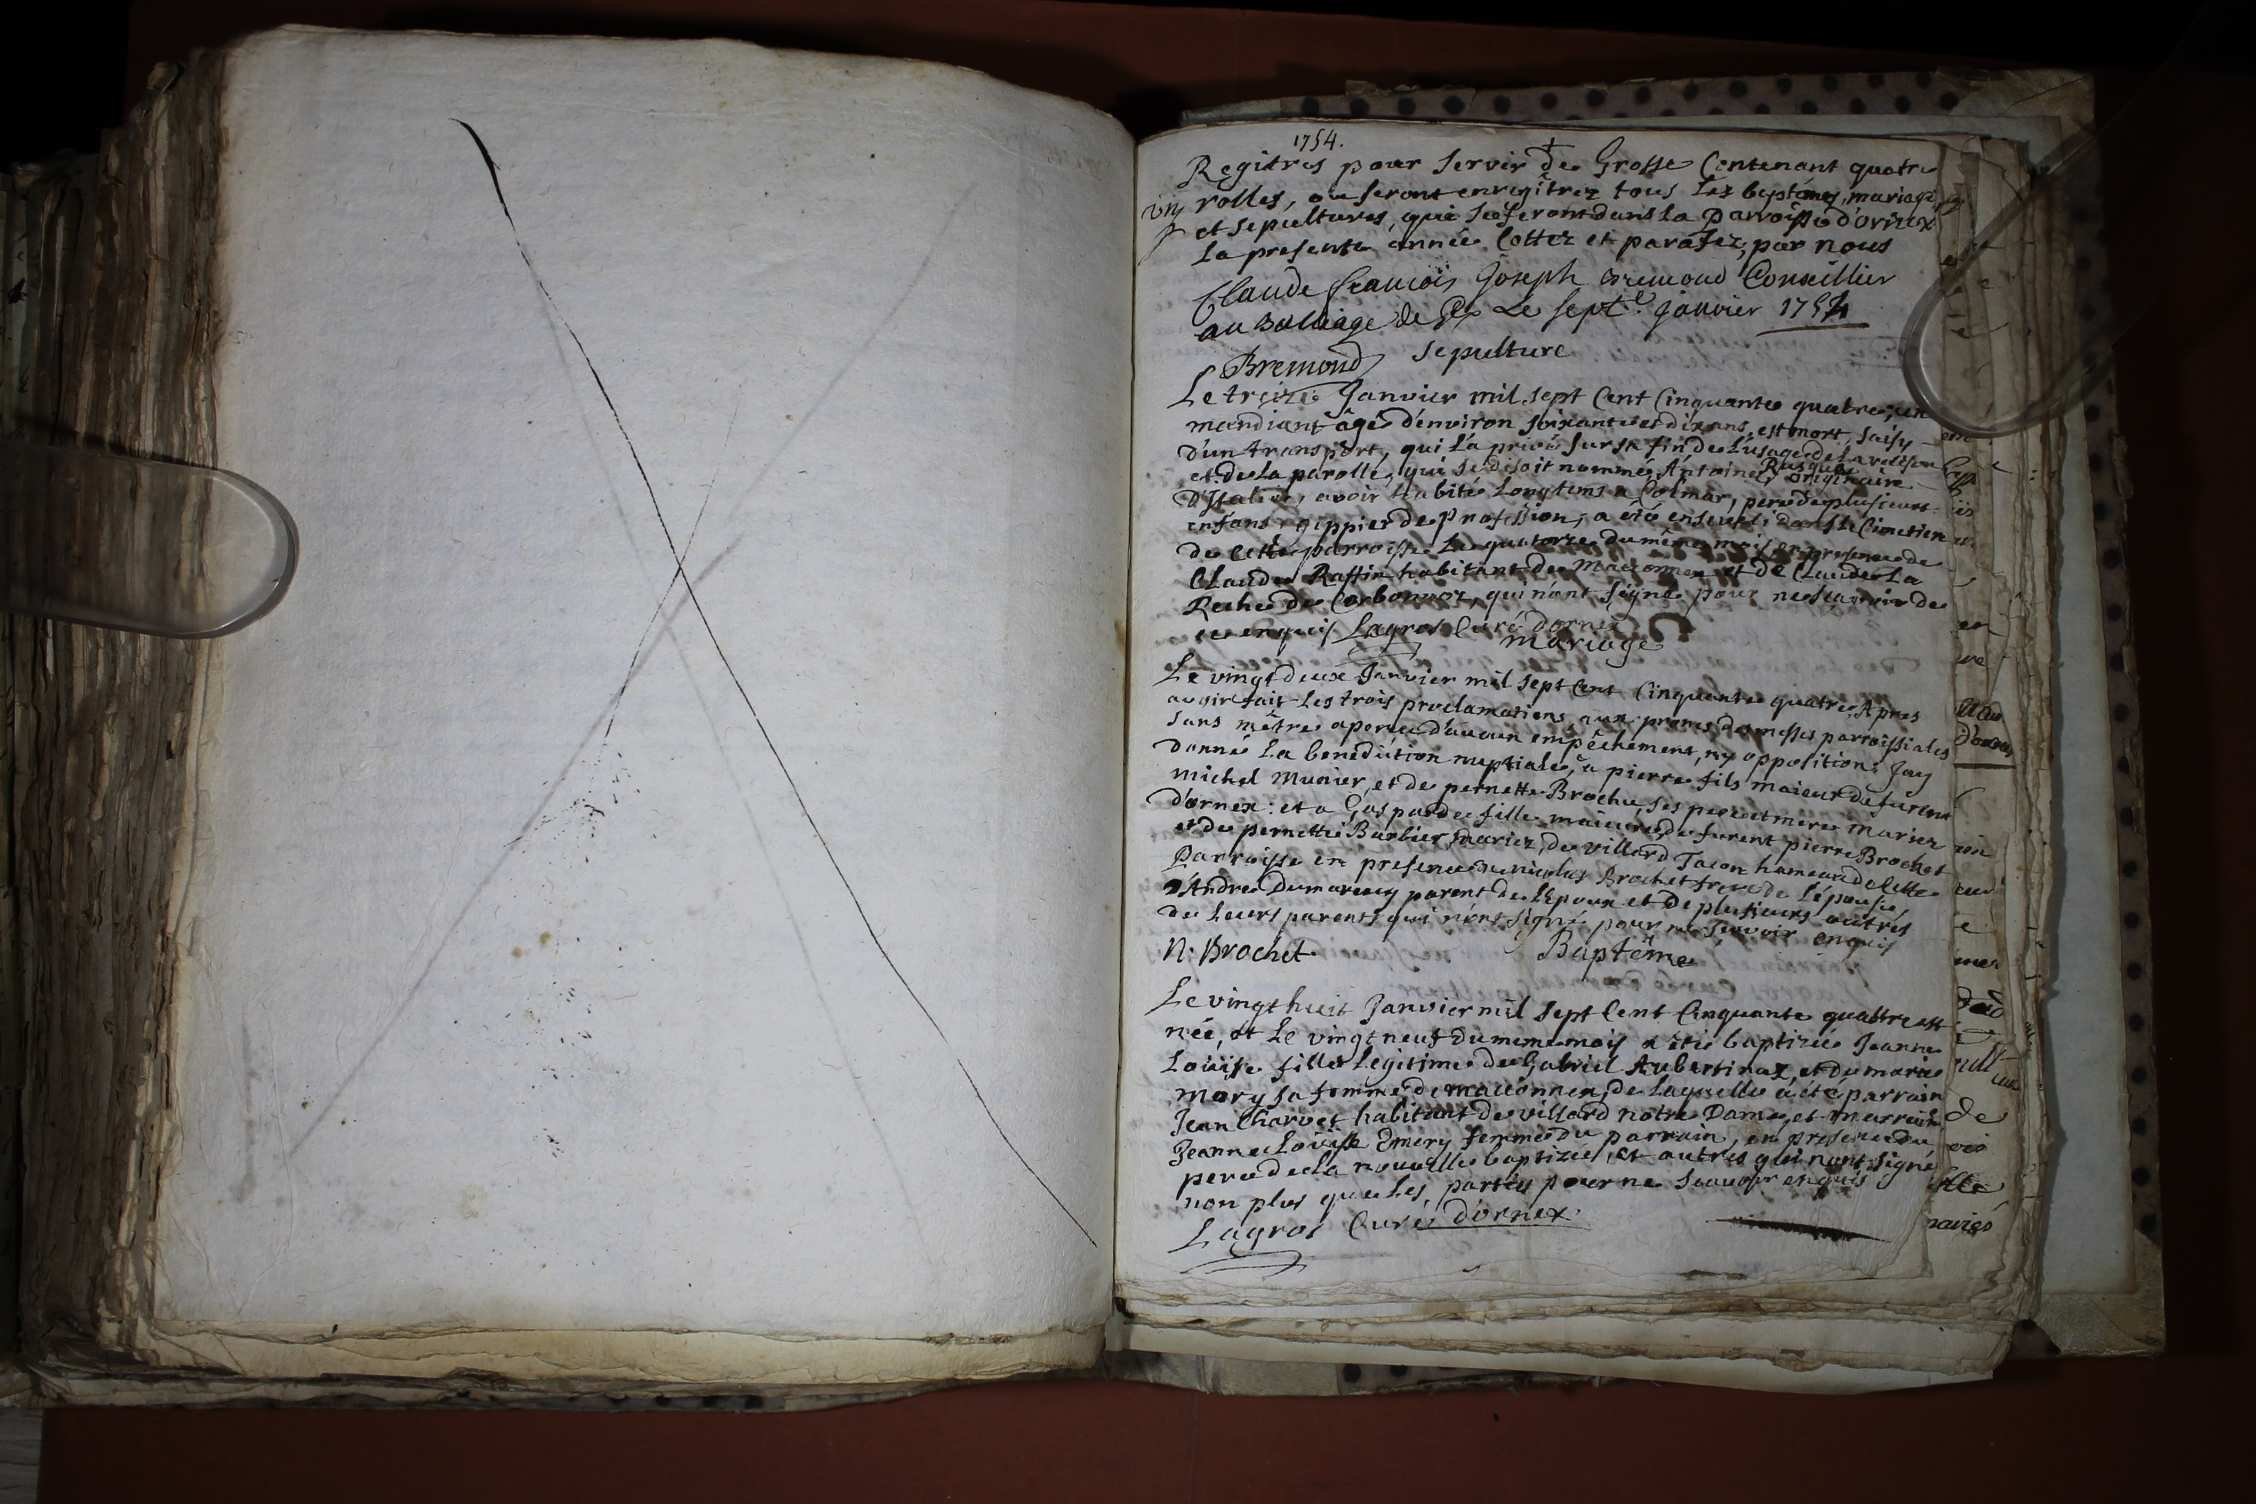 1754.
Regitres pour servir de Grosse Contenant quatre
rolles, ou seront enregitrez tous les baptêmes, mariages
et sepultures, qui se feront dans la Parroisse d'ornex
la presente année Cottez et parafez, par nous
Claude francois Joseph Bremond Conseillier
au Bailliage de Gex Le sept.e janvier 1754
Bremond
sepulture
Le treize Janvier mil sept Cent Cinquante quatre, un
mandiant âgé d'environ soixante et dix ans, est mort, saisy
d'un transport, qui l'a privé sur sa fin de l'usage de la raison
et de la parolle, qui se disoit nommé Antoine Rusque originaire
D'Italie, avoir habité Longtems a Colmar, pere de plusieurs
enfans, gippier de Profession, a été enseveli dans le Cimetiere
de cette parroisse le quatorze du même mois en presence de
Claude Raffin habitant de Maconnex et de Claude La
Reche de Corbonnoz, qui n'ont signé pour ne scavoir de
ce enquis Lagros Curé d'ornex
Mariage
Le vingt deux Janvier mil sept Cent Cinquante quatre, Apres
avoir fait les trois proclamations aux prones des messes parroissiales
sans m'être aperçu d'aucun empêchement, ny opposition, Jay
donné La benediction nuptiale, a pierre fils maieur de furent
michel Munier, et de pernette Brochu, ses pere et mere mariez
d'ornex: et a Gasparde fille maieure de furent pierre Brochet
et de pernette Barlier mariez, de villard Tacon hameau de cette
Parroisse en presence de nicolas Brochet frere de l'épouse,
d'Andre Dumarcey parent de l'Epoux et de plusieurs autres
de leurs parents qui n'ont signé pour ne scavoir enquis
N: Brochet
Baptême
Le vingt huit Janvier mil sept Cent Cinquante quattre est
née, et Le vingt neuf du meme mois a été baptizée Jeanne
Loüise fille Legitime de Gabriel Aubertinaz, et du marie
mory sa femme de maconnex, de laquelle a été parrain
Jean Charvet habitant de villard notre Dame, et marraine
Jeanne Loüise Emery femme du parrain, en presence du
pere de la nouvelle baptizée, et autres qui n'ont signé
non plus que les parties pour ne scavoir enquis
Lagros Curé d'ornex